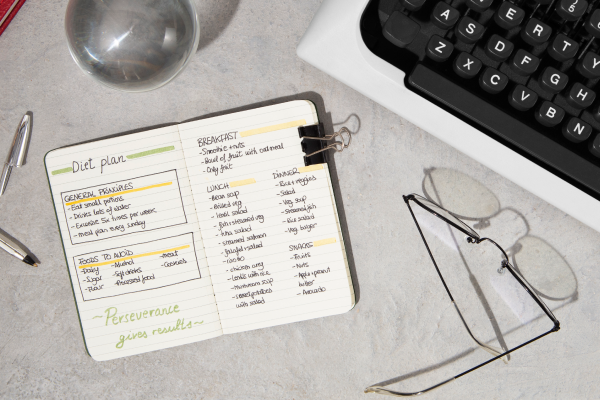 Diet plan
GENERAL PRINCIPLES
- Eat small portions
- Drinks lots of water
- Excersise 5x times per week
- meal plan every sunday
FOODS TO AVOID
- Dairy
- Sugar
- Flour
- Alcohol
- Soft drinks
- Processed food
- meat
- Cookies
~Perseverance
gives results~
BREAKFAST
- Smoothie + nuts
- Bowl of fruit with oatmeal
- Only fruit
LUNCH
- Bean soup
- Boiled egg
- lentil salad
- fish + steamed veg
- tuna salad
- steamed salmon
- falafel + salad
- chicken
- Lentils with rice
- mushroom soup
- sweet potatoes
with salad
DINNER
- Rice + veggies
- Salad
- Veg soup
- Steamed fish
- Rice salad
- Veg burger
SNACKS
- Fruits
- Nuts
- Apple + peanut
butter
- Avocado
W E R T Y
A S D F G H
Z X C V B N